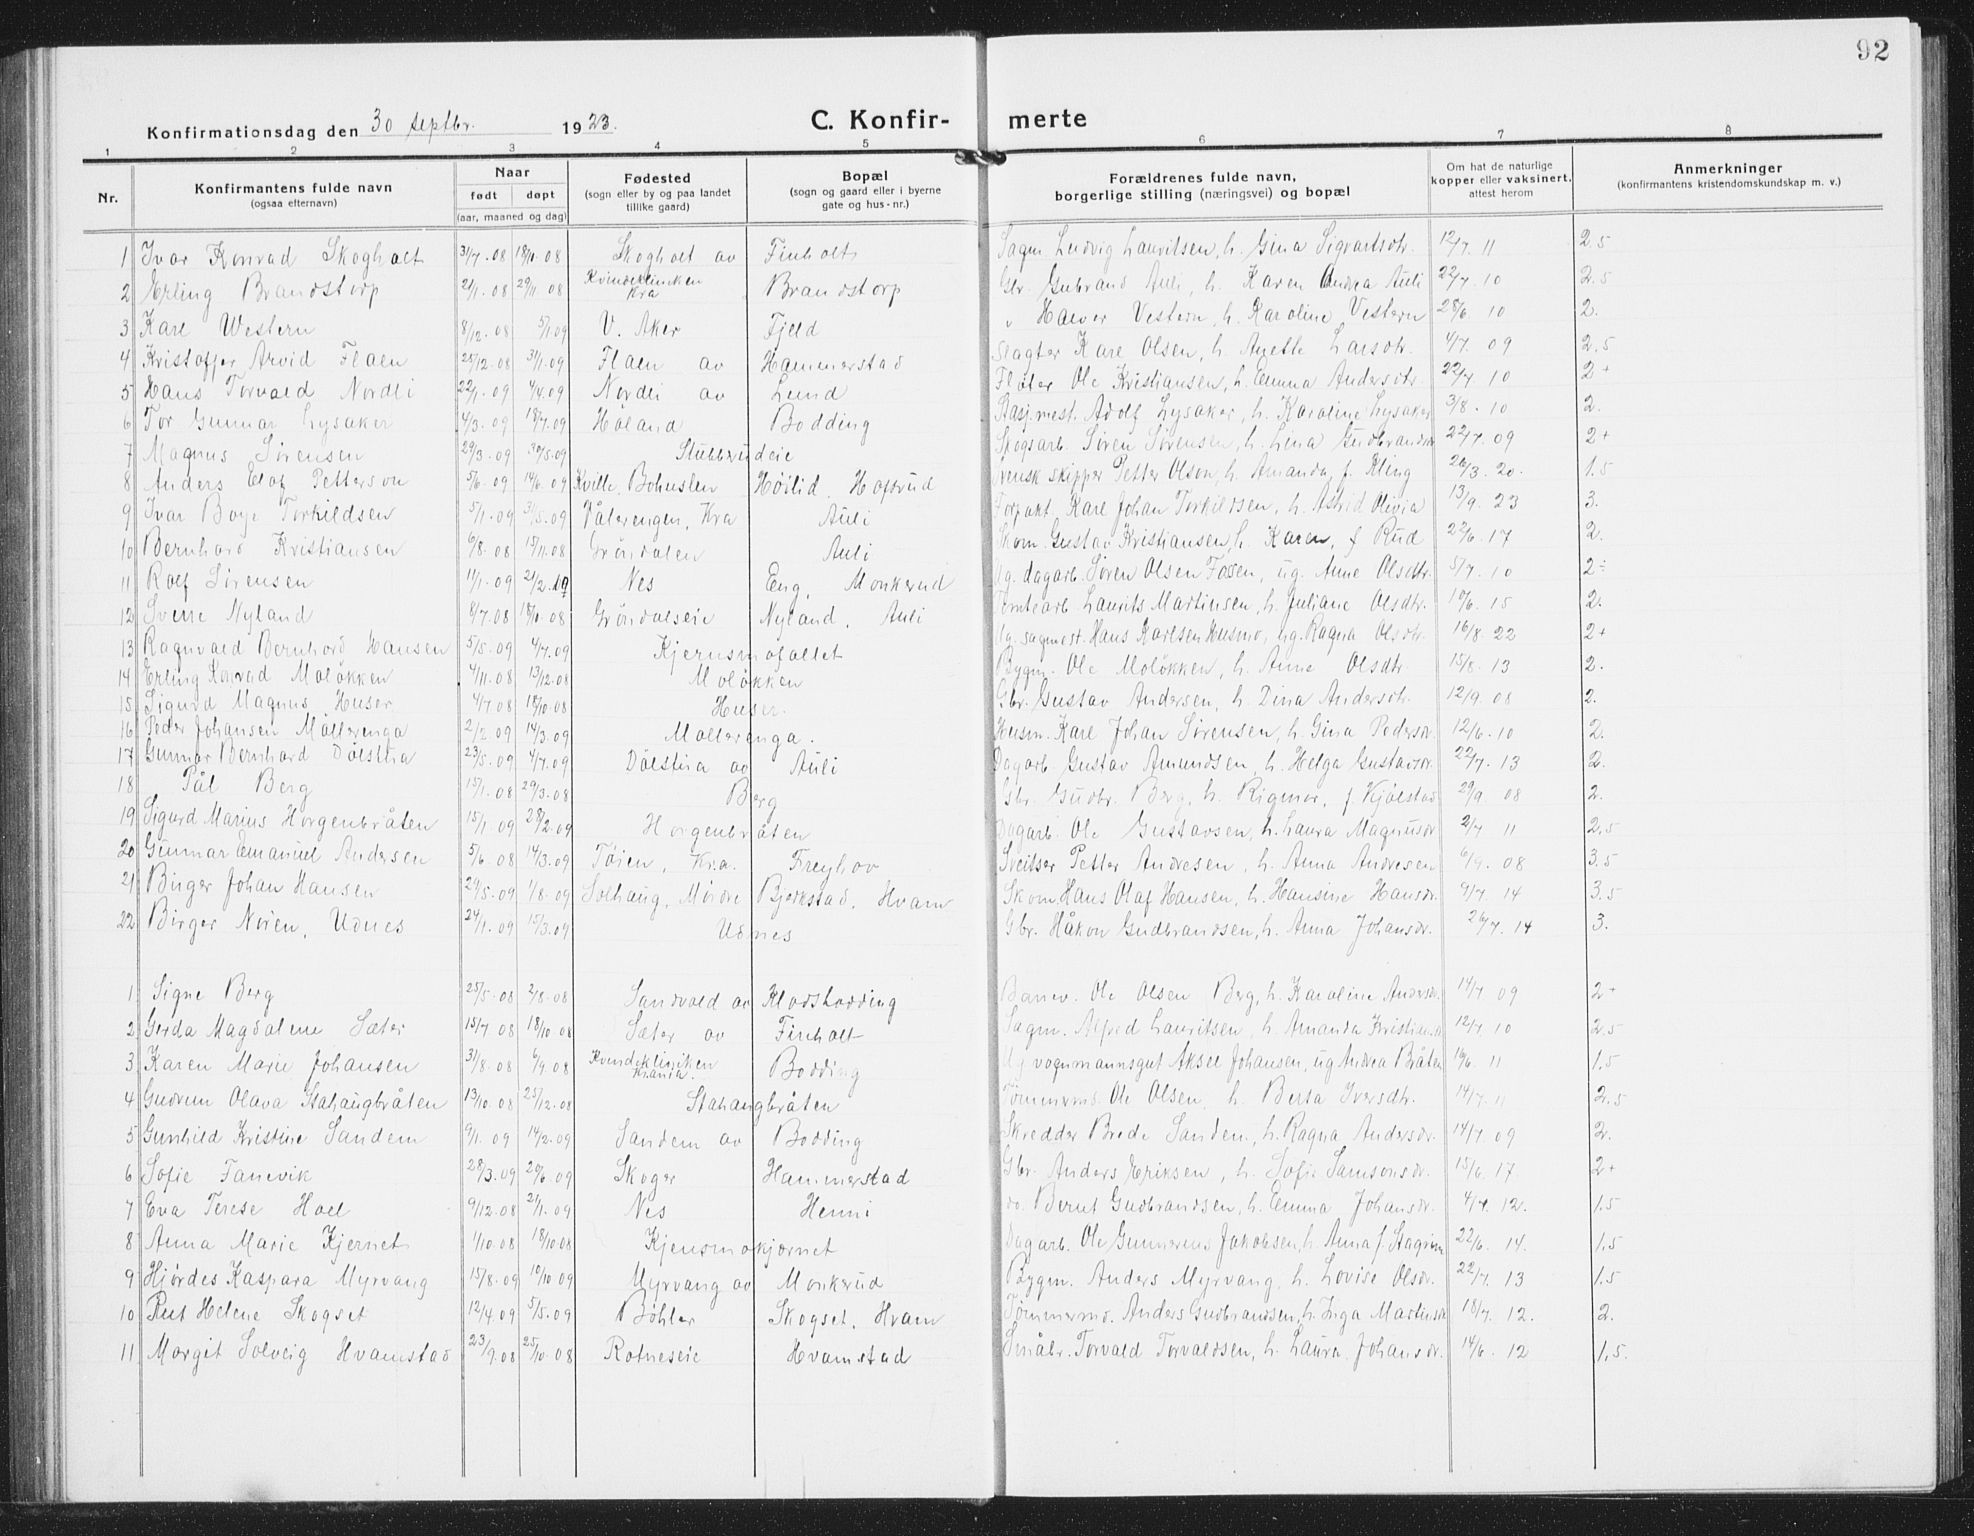 92
Konfirmationsdag den 30 septbr. 1923. C. Konfir- merte
1 2 3 4 5 6 7 8
Nr. Konfirmantens fulde navn (ogsaa efternavn) Naar født døpt (aar, maaned og dag) Fødested (sogn eller by og paa landet tillike gaard) Bopæl (sogn og gaard eller i byerne gate og hus-nr.) Forældrenes fulde navn, borgerlige stilling (næringsvei) og bopæl Om hat de naturlige kopper eller vaksinert, attest herom Anmerkninger (konfirmantens kristendomskundskap m. v.)
1 Ivar Konrad Skogholt 31/7.08 18/10.08 Skogholt av Finholt Sagm. Ludvig Lauritsen, h. Gina Sigvartsdtr. 12/7 11 2.5
2 Erling Brandstorp 21/1.08 29/11 08 Kvindeklinken Kra Brandstorp Gbr. Gubrand Auli, h. Karen Andrea Auli 22/7.10 2.5
3 Karl Western 8/12.08 5/1 09 V. Aker Fjeld " Halvor Vestern, h. Karoline Vestern 28/6 10 2.
4 Kristoffer Arvid Flaen 25/12.08 31/1.09 Flaen av Hammerstad Slagter Karl Olsen, h. Anette Larsdtr. 4/7. 09 2.5
5 Hans Torvald Nordli 22/1.09 4/4.09 Nordli av Lund Fløter Ole Kristiansen, h. Emma Andersdtr. 22/7. 10 2+
6 Tor Gunnar Lysaker 4/3.09 18/7.09 Høland Bodding Stasj.mest. Adolf Lysaker, h. Karoline Lysaker 3/8.10 2.
7 Magnus Sørensen 29/3.09 30/5.09 Stubberudeie Skogsarb. Søren Sørensen, h. Lina Gudbrandsdr 22/7.09 2+
8 Anders Elof Petterson 5/6.09 14/6.09 Kville, Bohuslen Høilid, Hofsrud Svensk skipper Petter Olson, h. Amanda, f. Kling 26/3.20. 1.5
9 Ivar Boye Torkildsen 5/1.09 31/5.09 Vålerengen, Kra Auli Forpakt. Karl Johan Torkildsen, h. Astrid Olivia 13/9. 23 3.
10 Bernhard Kristiansen 6/8.08 15/11.08 Grøndalen Auli Skom. Gustav Kristiansen, h. Karen, f Rud 22/6.17 2.
11 Rolf Sørensen 11/1.09 21/2.19 Nes Eng, Monkerud Ug. dagarb. Søren Olsen Fossen, ug. Anne Olsdtr. 5/7.10 2÷
12 Sverre Nyland 8/7.08 18/10.08 Grøndalseie Nyland, Auli Tomtearb. Laurits Martinsen, h. Juliane Olsdtr. 10/6.15 2.
13 Ragnvald Bernhard Hansen 5/5.09 4/7.09 Kjernsmofallet Ug. sagmest. Hans Karlsen Husmo, ug. Ragna Olsdtr. 16/8. 22 2+
14 Erling Konrad Moløkken 4/11.08 13/12.08 Moløkken Bygm. Ole Moløkken, h. Anne Olsdtr. 15/8.13 2.
15 Sigurd Magnus Huser 4/7.08 18/10.08 Huser. Gbr. Gustav Andersen, h. Dina Andersdtr. 12/9.08 2.
16 Peder Johansen Møllerenga 2/2 09 14/3.09 Møllerenga. Husm. Karl Johan Sørensen, h. Gina Pedersdr. 12/6.10 2.
17 Gunnar Bernhard Dølstua 23/5.09 4/7.09 Dølstua av Auli Dagarb. Gustav Amundsen, h. Helga Gustavsdr. 22/7.13 2.
18 Pål Berg 15/1.08 29/3.08 Berg Gbr. Gudbr. Berg, h. Rigmor, f. Kjølstad 29/9.08 2.
19 Sigurd Marius Horgenbråten 15/1.09 28/2.09 Horgenbråten Dagarb. Ole Gustavsen, h. Laura Magnusdr 2/7 11 2.5
20 Gunnar Emanuel Andersen 5/6.08 14/3.09 Tøien, Kra. Freyhov Sveitser Petter Andresen, h. Anna Andresen 6/9.08 3.5
21 Birger Johan Hansen 29/5.09 1/8.09 Solhaug, Mørdre Bjerkstad, Hvam Skom. Hans Olaf Hansen, h. Hansine Hansdr. 9/7.14 3.5
22 Birger Noren, Udnes 24/1.09 15/3.09 Udnes Gbr. Håkon Gudbrandsen, h. Anna Johansdr. 26/7.14 3.
1 Signe Berg 25/5.08 2/8.08 Sandvold av Klodsbodding Banev. Ole Olsen Berg, h. Karoline Andersdr. 14/7 09 2+
2 Gerda Magdalene Sæter 15/7 08 18/10.08 Sæter av Finholt Sagm. Alfred Lauritsen, h. Amanda Kristiansdr 12/7.10 2.5
3 Karen Marie Johansen 31/8.08 6/9.08 Kvindeklinikken Krania. Bodding Ug vognmannsgut Aksel Johansen, ug Andrea Bråten 16/6.11 1.5
4 Gudrun Olava Stahaugbråten 13/10.08 25/12.08 Stahaugbråten Tømmermd. Ole Olsen, h. Berta Iversdtr. 14/7.11 2.5
5 Gunhild Kristine Sandem 9/1.09 14/2.09 Sandem av Bodding Skredder Brede Sanden, h. Ragna Andersdr. 14/7.09 2.
6 Sofie Fanevik 28/3.09 20/6 09 Skoger Hammerstad Gbr. Anders Eriksen, h. Sofie Samsonsdr. 15/6.17. 2+
7 Eva Terese Hoel 9/12.08 21/1.09 Nes Henni do. Bernt Gudbrandsen, h. Emma Johansdr. 4/7.12. 1.5
8 Anna Marie Kjernet 1/10.08 18/10.08 Kjensmokjernet Dagarb. Ole Gunnerius Jakobsen, h. Anna f. Stagrim 22/6.14. 1.5
9 Hjørdes Kaspara Myrvang 15/8.09 10/10 09 Myrvang av Monkerud Bygm. Anders Myrvang, h. Lovise Olsdr. 22/7.13 1.5
10 Rut Helene Skogset 12/4.09 5/5.09 Bøhler Skogset, Hvam Tømmermd. Anders Gudbrandsen, h. Inga Martinsdr 18/7.12. 2.
11 Margit Solveig Hvamstad 23/9.08 25/10.08 Rotneseie Hvamstad Småbr. Torvald Torvaldsen, h. Laura Johansdr. 14/6.12 1.5.